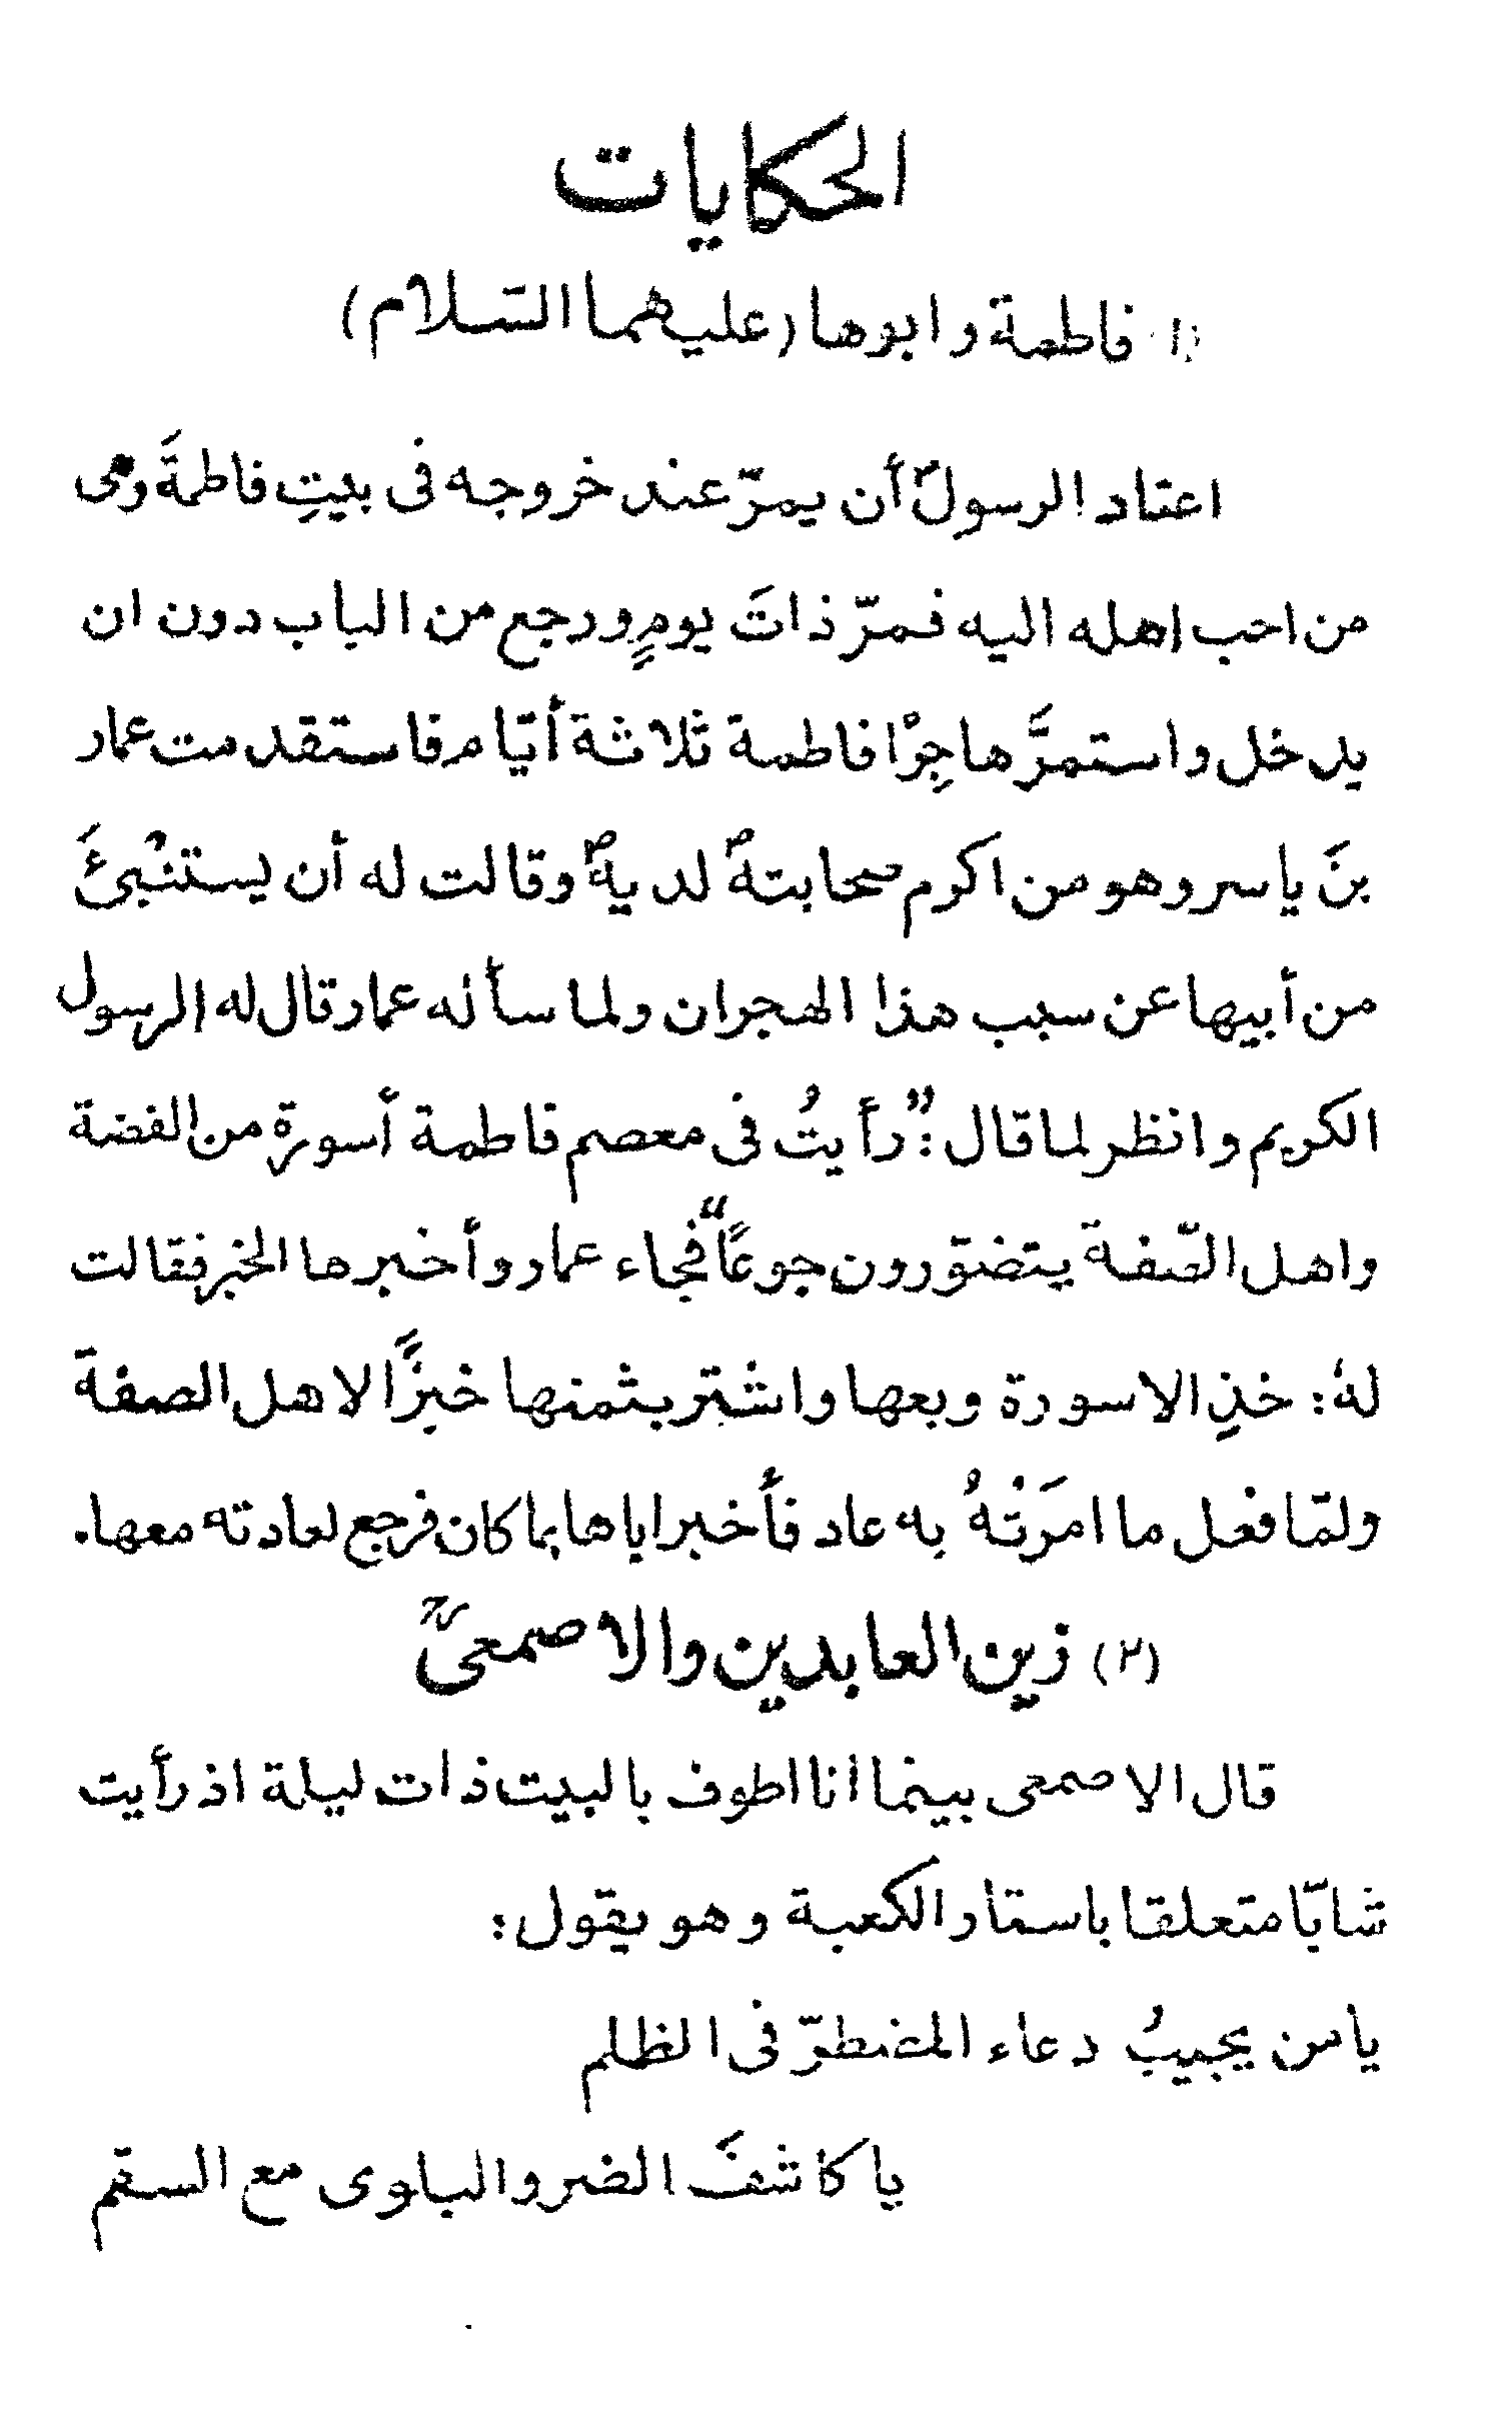 الحكايات
(١) فاطمة وابوها (عليهما السّلام)
اعتاد الرسولؐ أن يمرّ عند خروجه فى بيتِ فاطمةَ وهى
من احب اهله اليه فمرّ ذاتَ يومٍ ورجع من الباب دون ان
يدخل واستمرَّ هاجِرًا فاطمة ثلاثة أيّام فاستقدمت عمار
بنَ ياسر وهو من اكرم صحابتهٖ لديهٖ وقالت له أن يستنْبئَ
من أبيها عن سبب هذا الهجران ولما سأله عمار قال له الرسول
الكريم وانظر لما قال: "رأيتُ فى معصم فاطمة أسورة من الفضة
واهل الصّفة يتضوّرون جوعًا" فجاء عمار وأخبرها الخبر فقالت
لهٗ: خذِ الاسورة وبعها واشترِ بثمنها خبزًا لاهل الصفة
ولمّا فعل ما امرَتْهُ به عاد فأَخبر اباها بما كان فرجع لعادته معها.
(٢) زين العابدين والاصمعىؒ
قال الاصمعى بينما انا اطوف بالبيت ذات ليلة اذ رأيت
شابّا متعلقا باستار الكعبة وهو يقول:
يا من يجيبُ دعاء المضطرّ فى الظلم
يا كاشفَ الضر والبلوى مع السقم